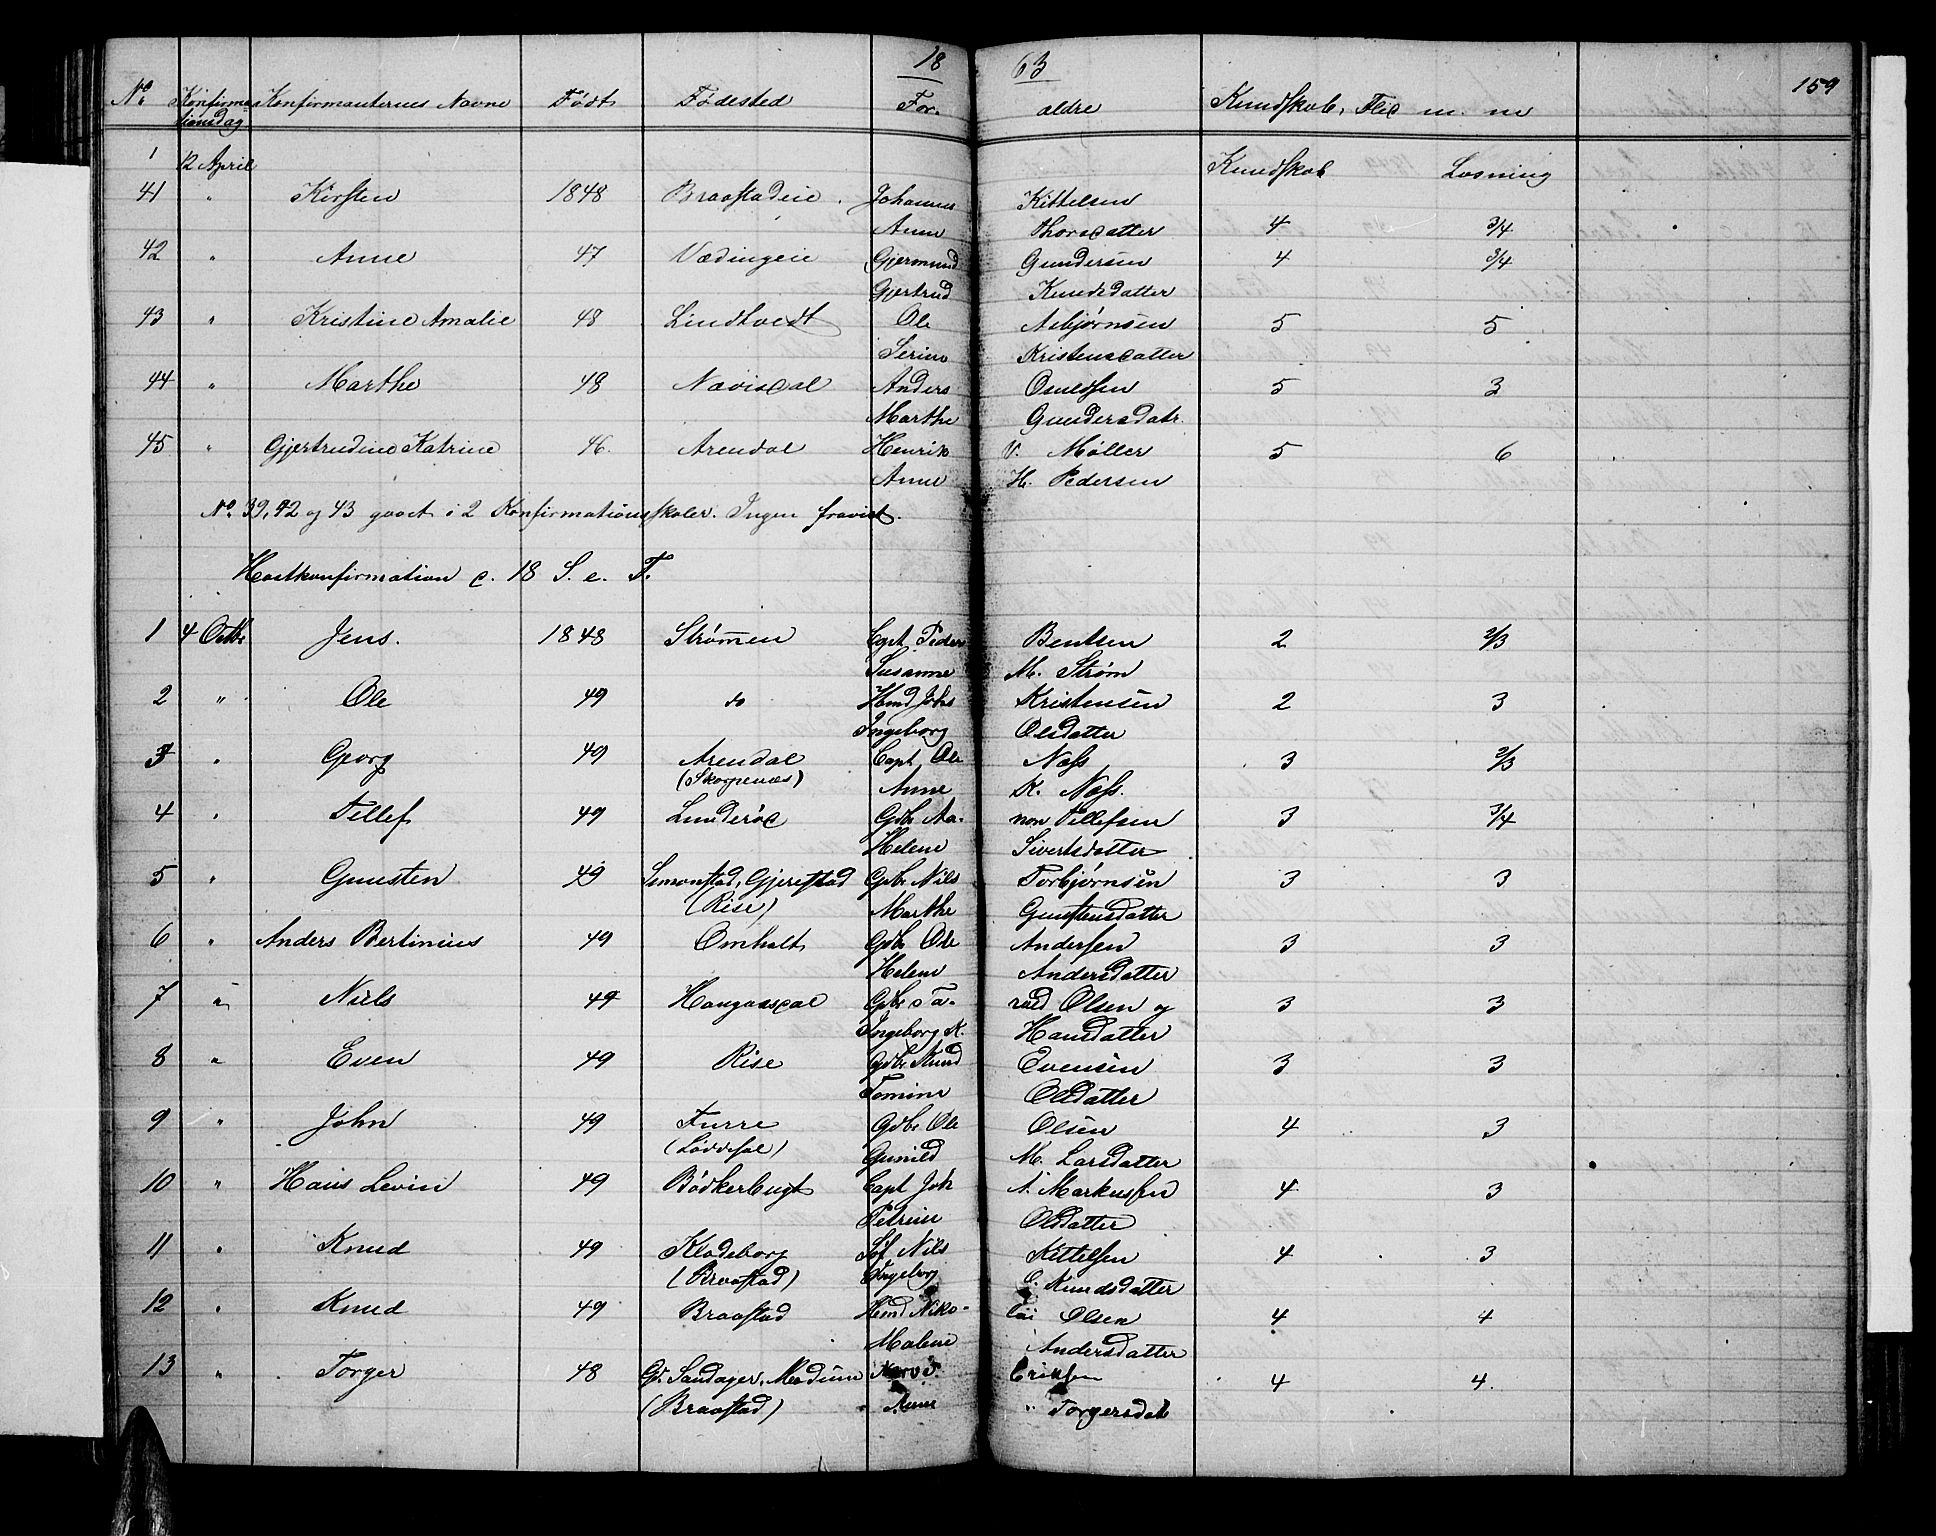 18 63
159
No. Konfirma Konfirmanternes Navne Født Fødested For- ældre Kundskab, Flid m. m
tionsdag
1 12 April Kundskab Læsning
41 " Kirsten 1848 Braastadeie Johannes Kittelsen
Anne Thorsdatter 4 3/4
42 " Anne 47 Vædingeie Gjermund Gundersen 4 3/4
Gjertrud Knudsdatter
43 " Kristine Amalie 48 Lindtvedt Ole Asbjørnsen 5 5
Serine Kristensdatter
44 " Marthe 48 Nævisdal Anders Osuldsen 5 3
Marthe Gundersdatr.
45 " Gjertrudine Katrine 46. Arendal Henrik V. Møller 5 6
Anne H. Pedersen
No. 39, 42 og 43 gaaet i 2 Konfirmationsskoler. Ingen fravist.
Høstkonfirmation d. 18 S. e. T.
1 4 Octbr Jens. 1848 Strømmen Capt Peder Bentsen 2 2/3
Susanne M. Strøm
2 " Ole 49 do Hmd Johs Kristensen 2 3
Ingeborg Olsdatter
3 " Georg 49 Arendal Capt Ole Næss 3 2/3
(Skarpenæs) Anne K. Næss.
4 " Tellef 49 Lunderød Gdbr Aa- non Tellefsen 3 3/4
Helene Sivertsdatter
5 " Gunsten 49 Simonstad, Gjerestad Gdbr Nils Torbjørnsen 3 3
(Rise) Marthe Gunstensdatter
6 " Anders Bertinius 49 Omholt Gdbr Ole Andersen 3 3
Helene Andersdatter
7 " Niels 49 Haugaasdal Gdbr Ta- rald Olsen og 3 3
Ingeborg K. Hansdatter
8 " Even 49 Rise Gdbr Knud Evensen 3 3
Tomine Olsdatter
9 " John 49 Furre Gdbr Ole Olsen 4 3
(Løddesøl) Gunild M. Larsdatter
10 " Hans Levin 49 Bödkerbugt Capt Joh A. Markussen 4 3
Petrine Olsdatter
11 " Knud 49 Klodeborg Søf Nils Kittelsen 4 3
(Braastad) Ingeborg C. Knudsdatter
12 " Knud 49 Braastad Hmd Niko- lai Olsen 4 4
Malene Andersdatter
13 " Torger 48 Gr. Sandager, Mødium Eriksen 4 4.
(Braastad) Anne " Torgersdat